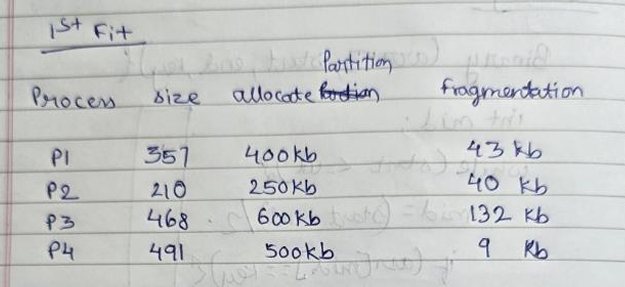 1st Fit
Partition
Process size allocate fragmentation
P1 357 400kb 43 kb
P2 210 250kb 40 kb
P3 468 600kb 132 kb
P4 491 500kb 9 kb